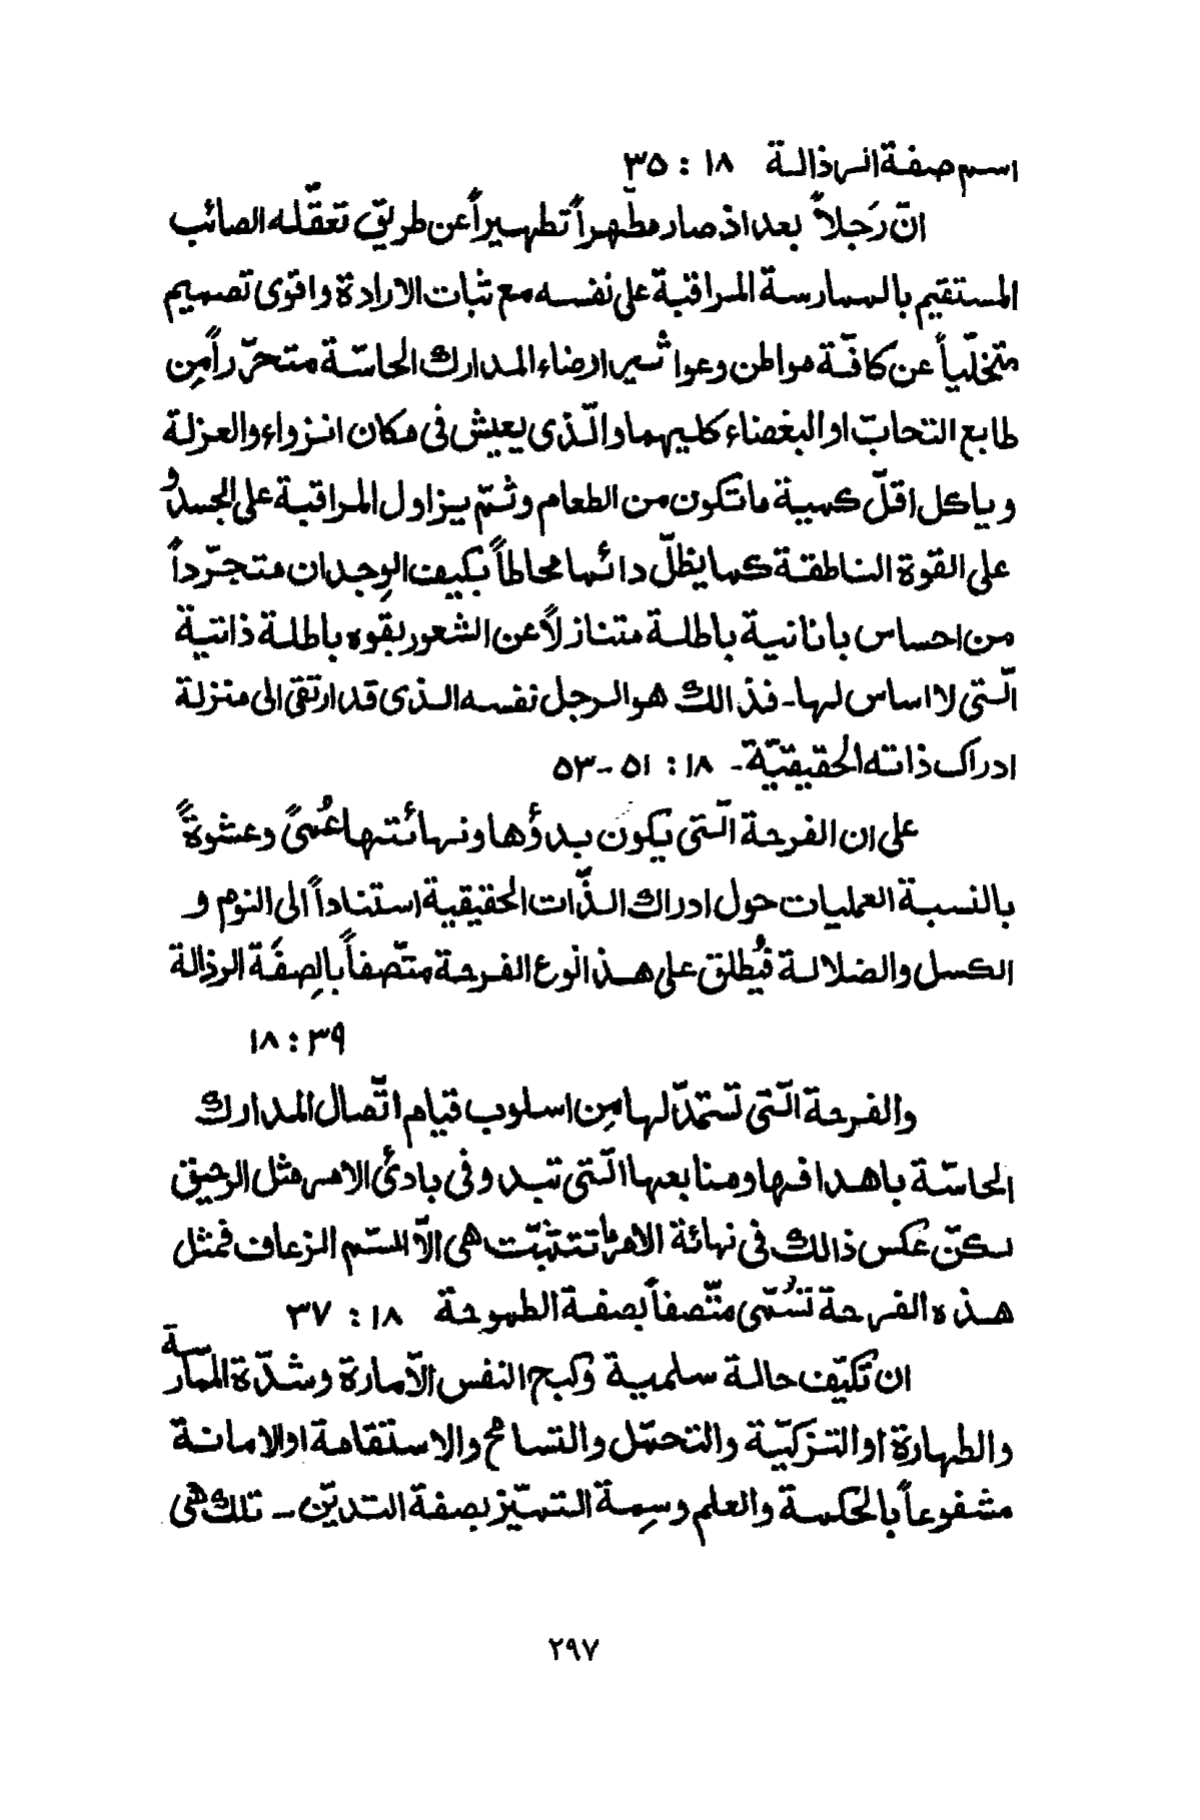 اسم صفة الرذالة ١٨ : ٣٥
انّ رَجلاً بعد اذ صار مطهّراً تطهيراً عن طريق تعقّله الصائب
المستقيم بالممارسة المراقبة على نفسه مع ثبات الارادة واقوى تصميم
متخلّياً عن كافّة مواطن وعوا ثير ارضاء المدارك الحاسّة متحرّراً مِن
طابع التحابّ او البغضاء كليهما والّذى يعيش فى مكان انزواء والعزلة
وياكل اقلّ كمية ماتكون من الطعام وثمّ يزاول المراقبة على الجسد و
على القوة الناطقة كما يظلّ دائما محاطاً بكيف الوِجدان متجرّداً
من احساس بانانية باطلة متنازلاً عن الشعور بقوه باطلة ذانتية
الّتى لا اساس لها ـ فذالك هو الرجل نفسه الذى قد ارتقى الى منزلة
ادراك ذاته الحقيقيّة ـ ١٨ : ٥١ ـ ٥٣
على ان الفرحة الّتى يكون بدؤها ونهائتها عُمىً وعشوةً
بالنسبة العمليات حول ادراك الذّات الحقيقية استناداً الى النوم و
الكسل والضلالة فُيطلق على هذا نوع الفرحة متّصفاً بالصِفَة الرذالة
١٨ : ٣٩
والفرحة الّتى تستمدّ لها مِن اسلوب قيام اتّصال المدارك
الحاسّة باهدافها ومنابعها الّتى تبدو فى بادئ الامر مثل الرحيق
لكنّ عكس ذالك فى نهائة الامر ما تتثبّت هى الاّ السّم الزعاف فمثل
هذه الفرحة تسُمّى متّصفاً بصفة الطموحة ١٨ : ٣٧
ان تكيّف حالة سلمية وكبح النفس الاّمارة وشدّة الممّارسة
والطهارة او التزكيّة والتحمّل والتسامح والاستقامة او الامانة
مشفوعاً بالحكمة والعلم وسِمة التميّز بصفة التديّن ـ تلك هى
٢٩٧